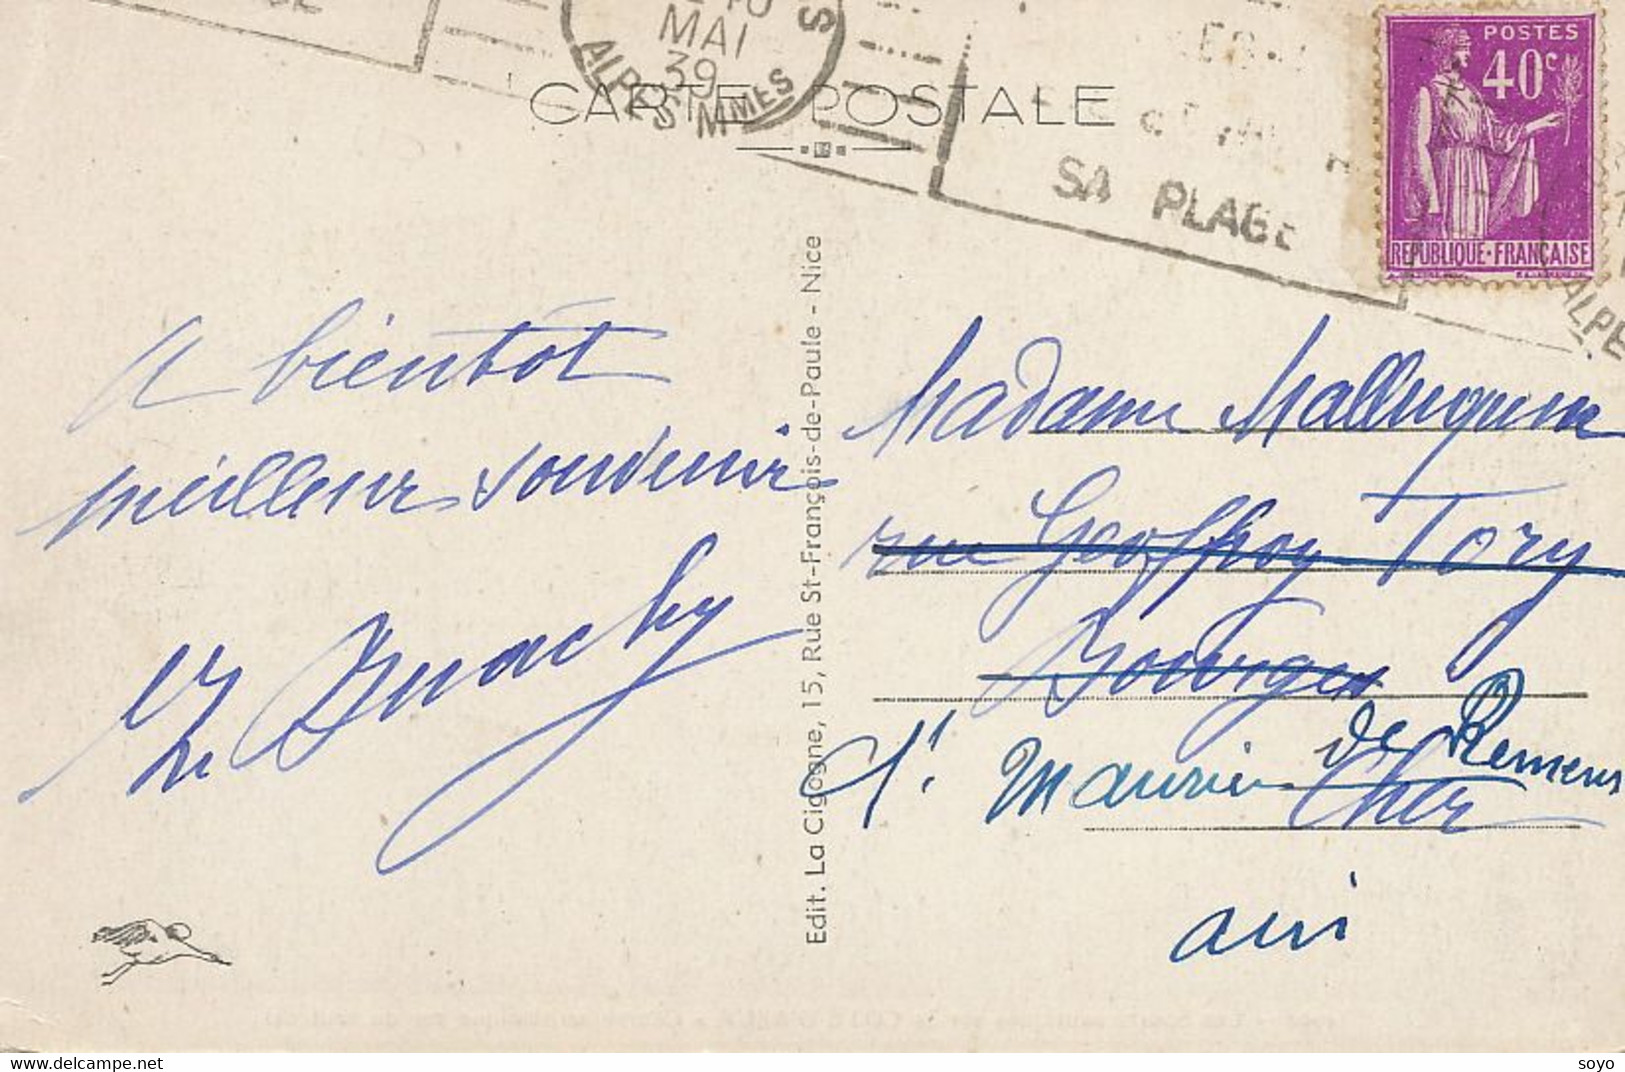 MAI
39
ALPES MMES
CARTE POSTALE
SA PLAGE
POSTES
40c
REPUBLIQUE-FRANÇAISE
ALPE
A bientôt
meilleur souvenir
Edit. La Cigogne, 15, Rue St-François-de-Paule - Nice
Madame
rue Geoffroy Tory
Bourges
de Remens
St Maurice
Cher
ain
www.delcampe.net
soyo